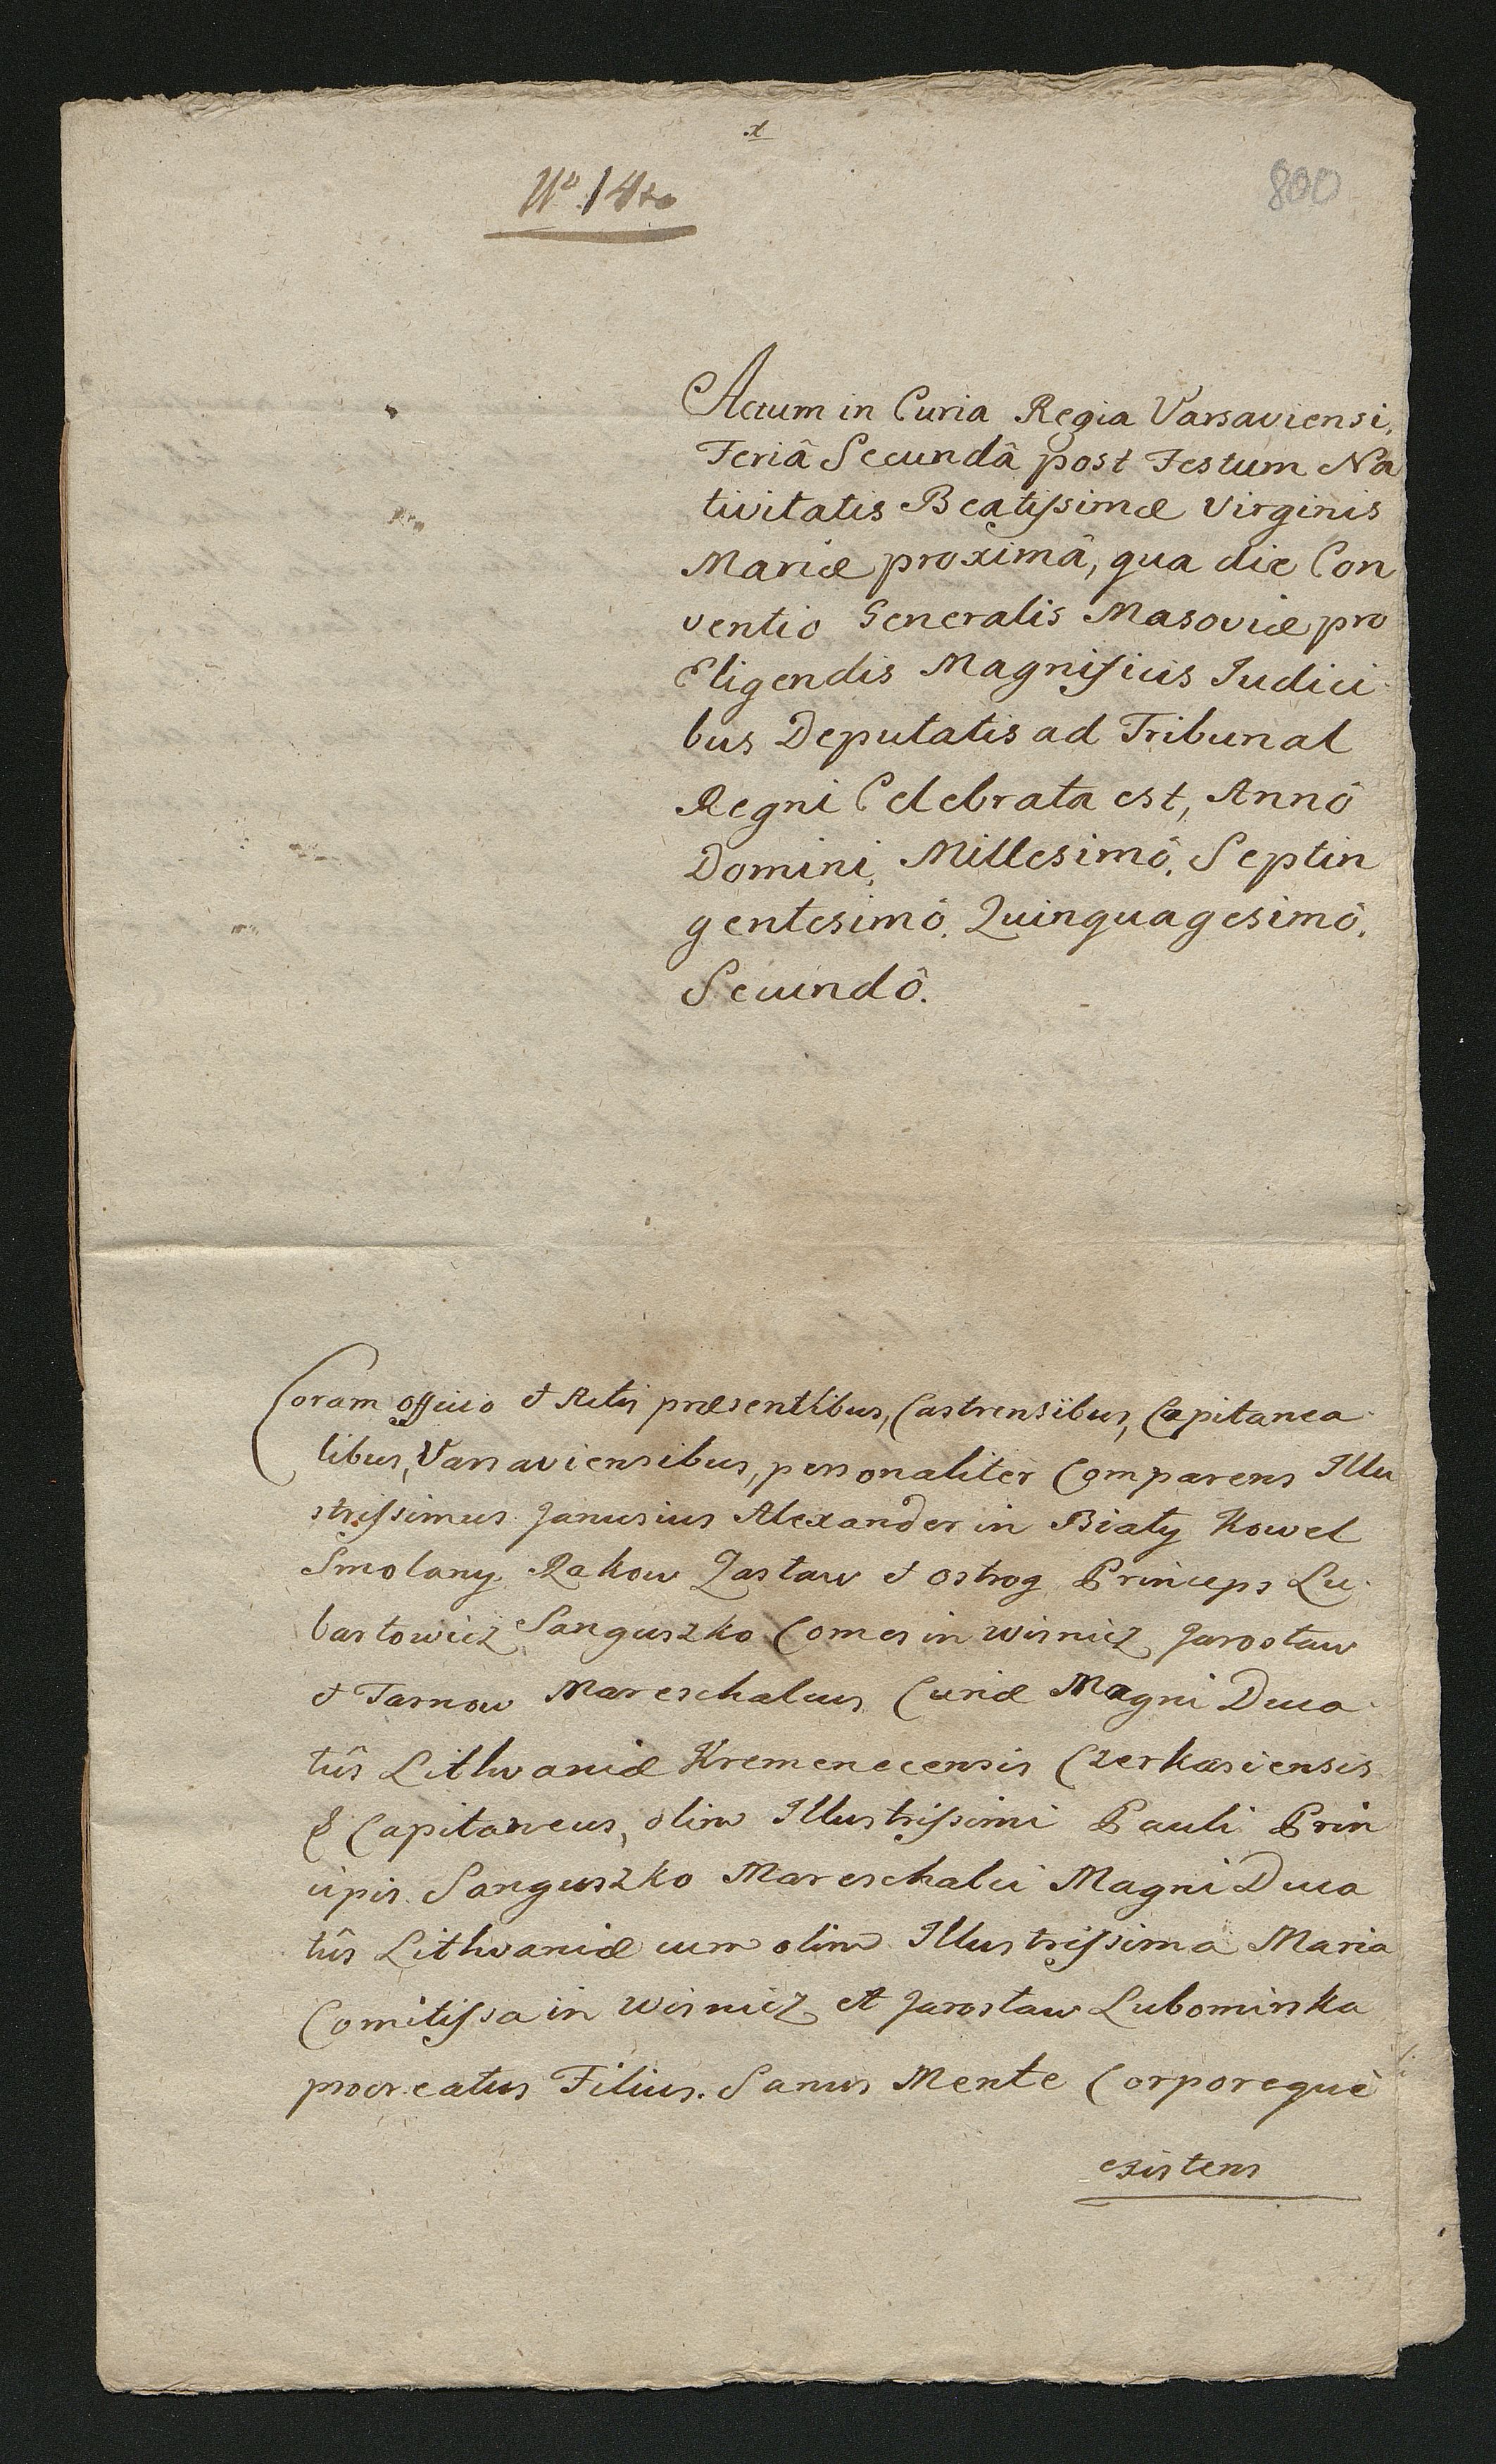 x
No. 14to
800
Actum in Curia Regia Varsaviensi,
Feriâ Secundâ post Festum Na
tivitatis Beatissimæ Virginis
Mariæ proximâ, qua die Con
ventio Generalis Masoviæ pro
Eligendis Magnificis Iudici
bus Deputatis ad Tribunal
Regni Celebrata est, Annô
Domini, Millesimô, Septin
gentesimô, Quinquagesimô,
Secundô.
Coram officio et Actis præsentibus, Castrensibus, Capitanea
libus, Varsaviensibus, personaliter Comparens Illu
strissimus Janusius Alexander in Biały Kowel
Smolany Rakow Zasław et Ostrog Princeps Lu
bartowicz Sanguszko Comes in Wisnicz Jarosław
et Tarnow Mareschalcus Curiæ Magni Duca
tûs Lithvaniæ Kremenecensis Czerkasiensis
& Capitaneus, olim Illustrissimi Pauli Prin
cipis Sanguszko Mareschalci Magni Duca
tûs Lithvaniæ cum olim Illustrissima Maria
Comitissa in Wisnicz et Jarosław Lubomirska
procreatus Filius. Sanus Mente Corporeque
existens